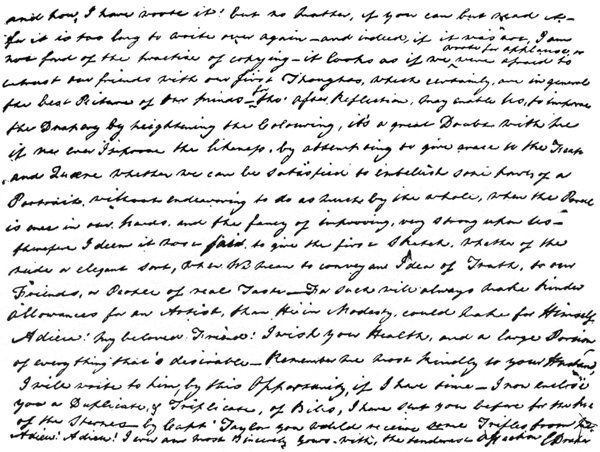 and how, I have wrote it! but no matter, if you can but read it—
for it is too long to write over again—and indeed, if it was not, I am
not fond of the practice of copying—it looks as if we wrote for applause, or were afraid to
intrust our friends with our first Thoughts, which certainly, are in general
the best Picture of our minds—& tho' after Reflection, may enable Us, to improve
the Drapery by heightening the Colouring, it's a great Doubt with me
if we ever Improve the likeness, by attempting to give grace to the Features
and Quere whether we can be satisfied to embellish some parts of a
Portrait, without endeavouring to do as much by the whole, when the Pencil
is once in our hands, and the fancy of improving, very strong upon Us—
therefore I deem it most fair, to give the first Sketch, whether of the
rude or elegant sort, when We mean to convey an Idea of Truth, to our
Friends, or People of real Taste—For such will always make kinder
allowances for an Artist, than He in Modesty, could make for Himself
Adieu! my beloved Friend! I wish your Health, and a large Portion
of everything that's desirable—Remember me most kindly to your Husband,
I will write to him, by this Opportunity, if I have time—I now enclose
you a Duplicate, & Triplicate, of Bills, I have sent you before for the use
of the Sternes—by Capt Taylor you should receive some Trifles from
Adieu! Adieu! I ever am most Sincerely yours—with, the tenderest Affection E Draper